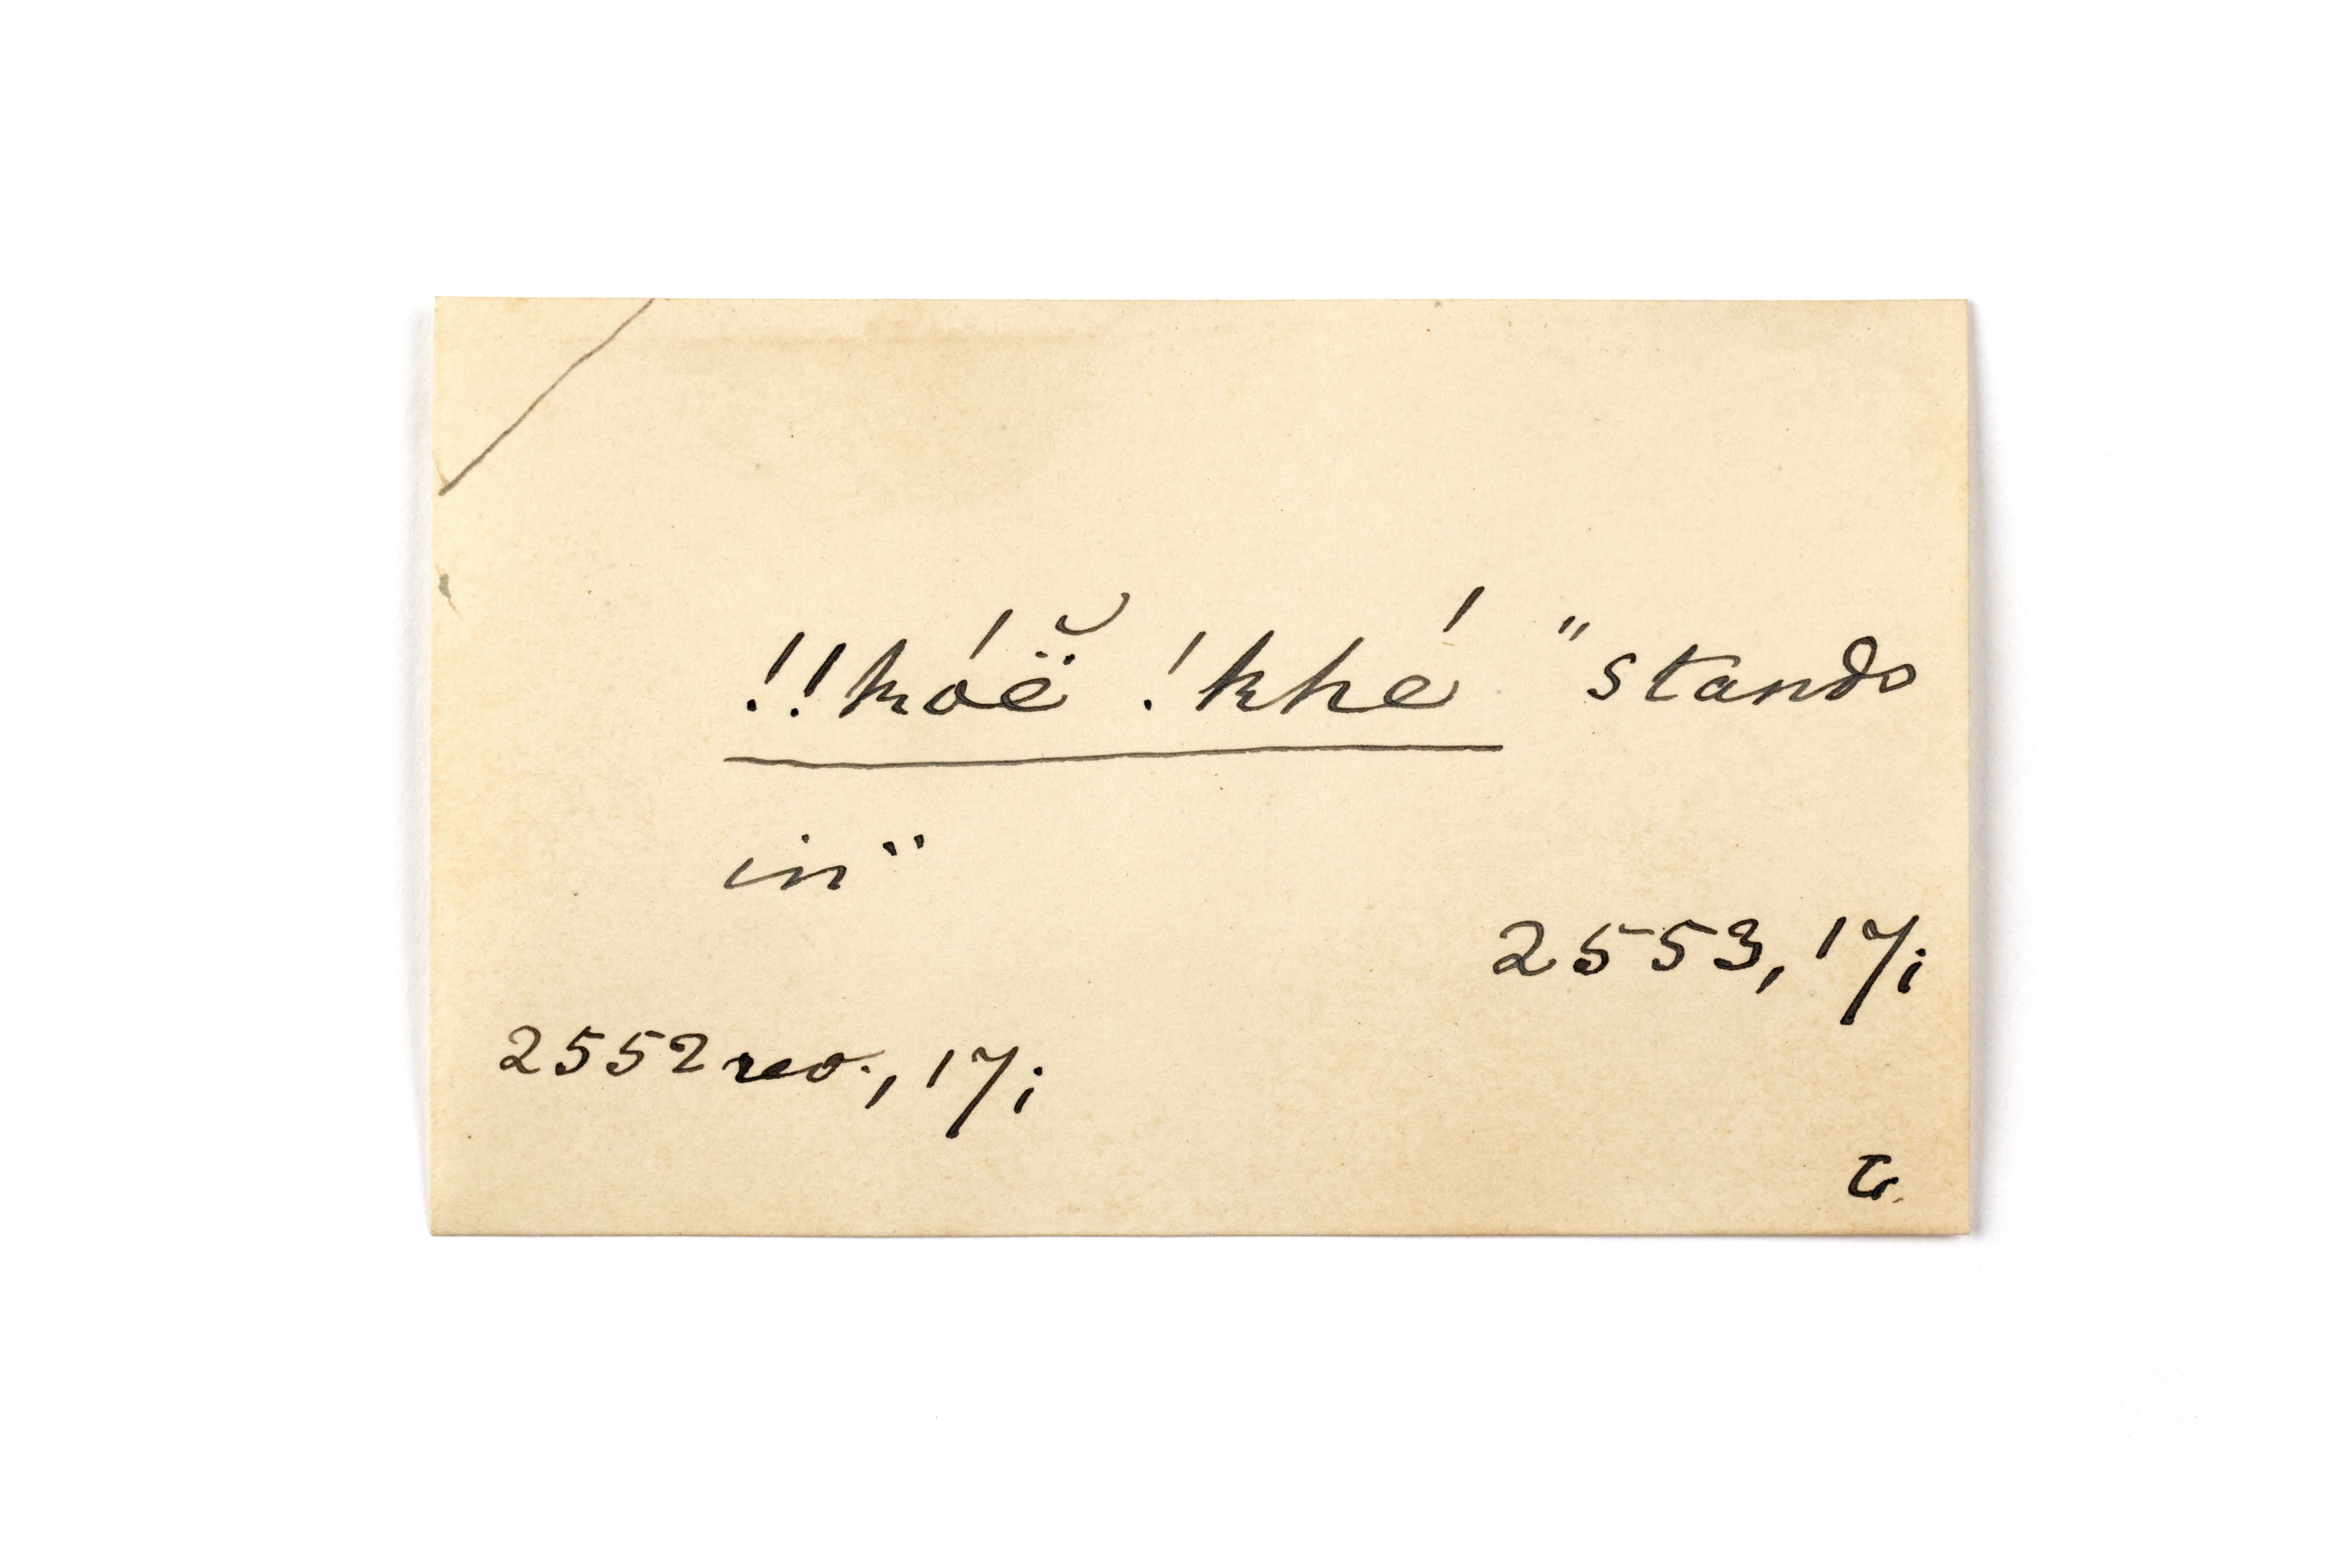 !!kóë̆ !khé "stands
in"
2553, 17;
2552 rev., 17;